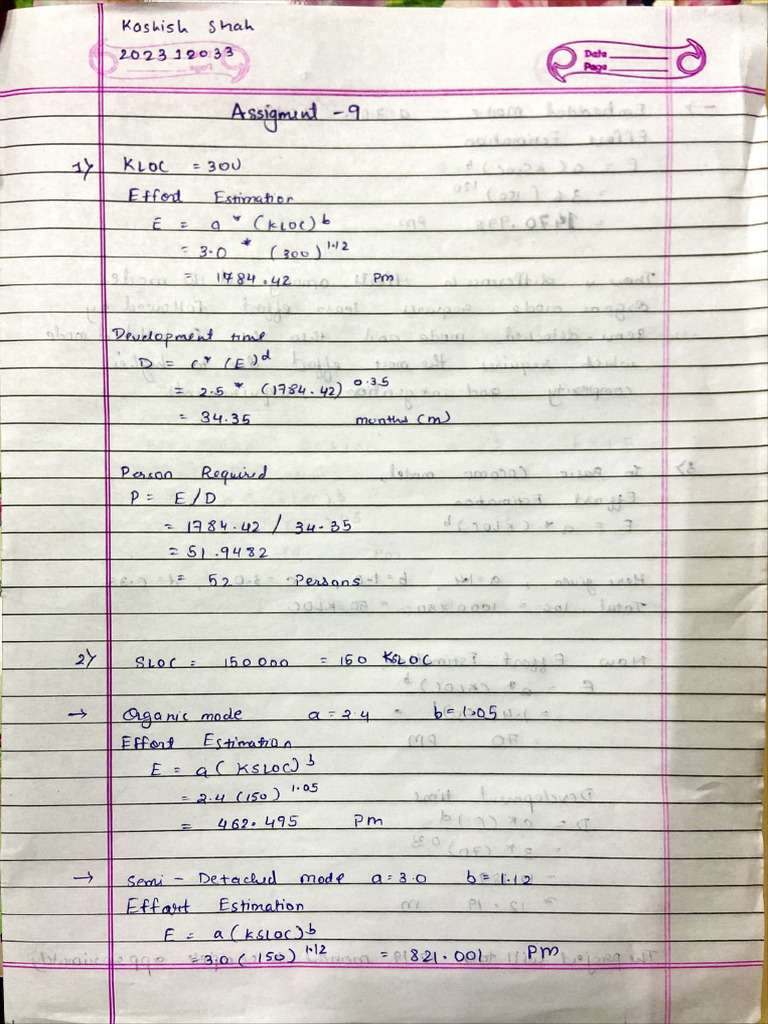 Koshish Shah
202312033
Date
Page
Assigment - 9
1) KLOC = 300
Effort Estimation
E = a * (KLOC)^b
= 3.0 * (300)^1.12
= 1784.42 Pm
Development time
D = c* (E)^d
= 2.5 * (1784.42)^0.35
= 34.35 months (m)
Person Required
P = E/D
= 1784.42 / 34.35
= 51.9482
= 52 Persons
2) SLOC = 150000 = 150 KSLOC
→ Organic mode a = 2.4 b = 1.05
Effort Estimation
E = a (KSLOC)^b
= 2.4 (150)^1.05
= 462.495 Pm
→ Semi - Detached mode a = 3.0 b = 1.12
Effart Estimation
E = a (KSLOC)^b
= 3.0 (150)^1.12 = 821.001 Pm